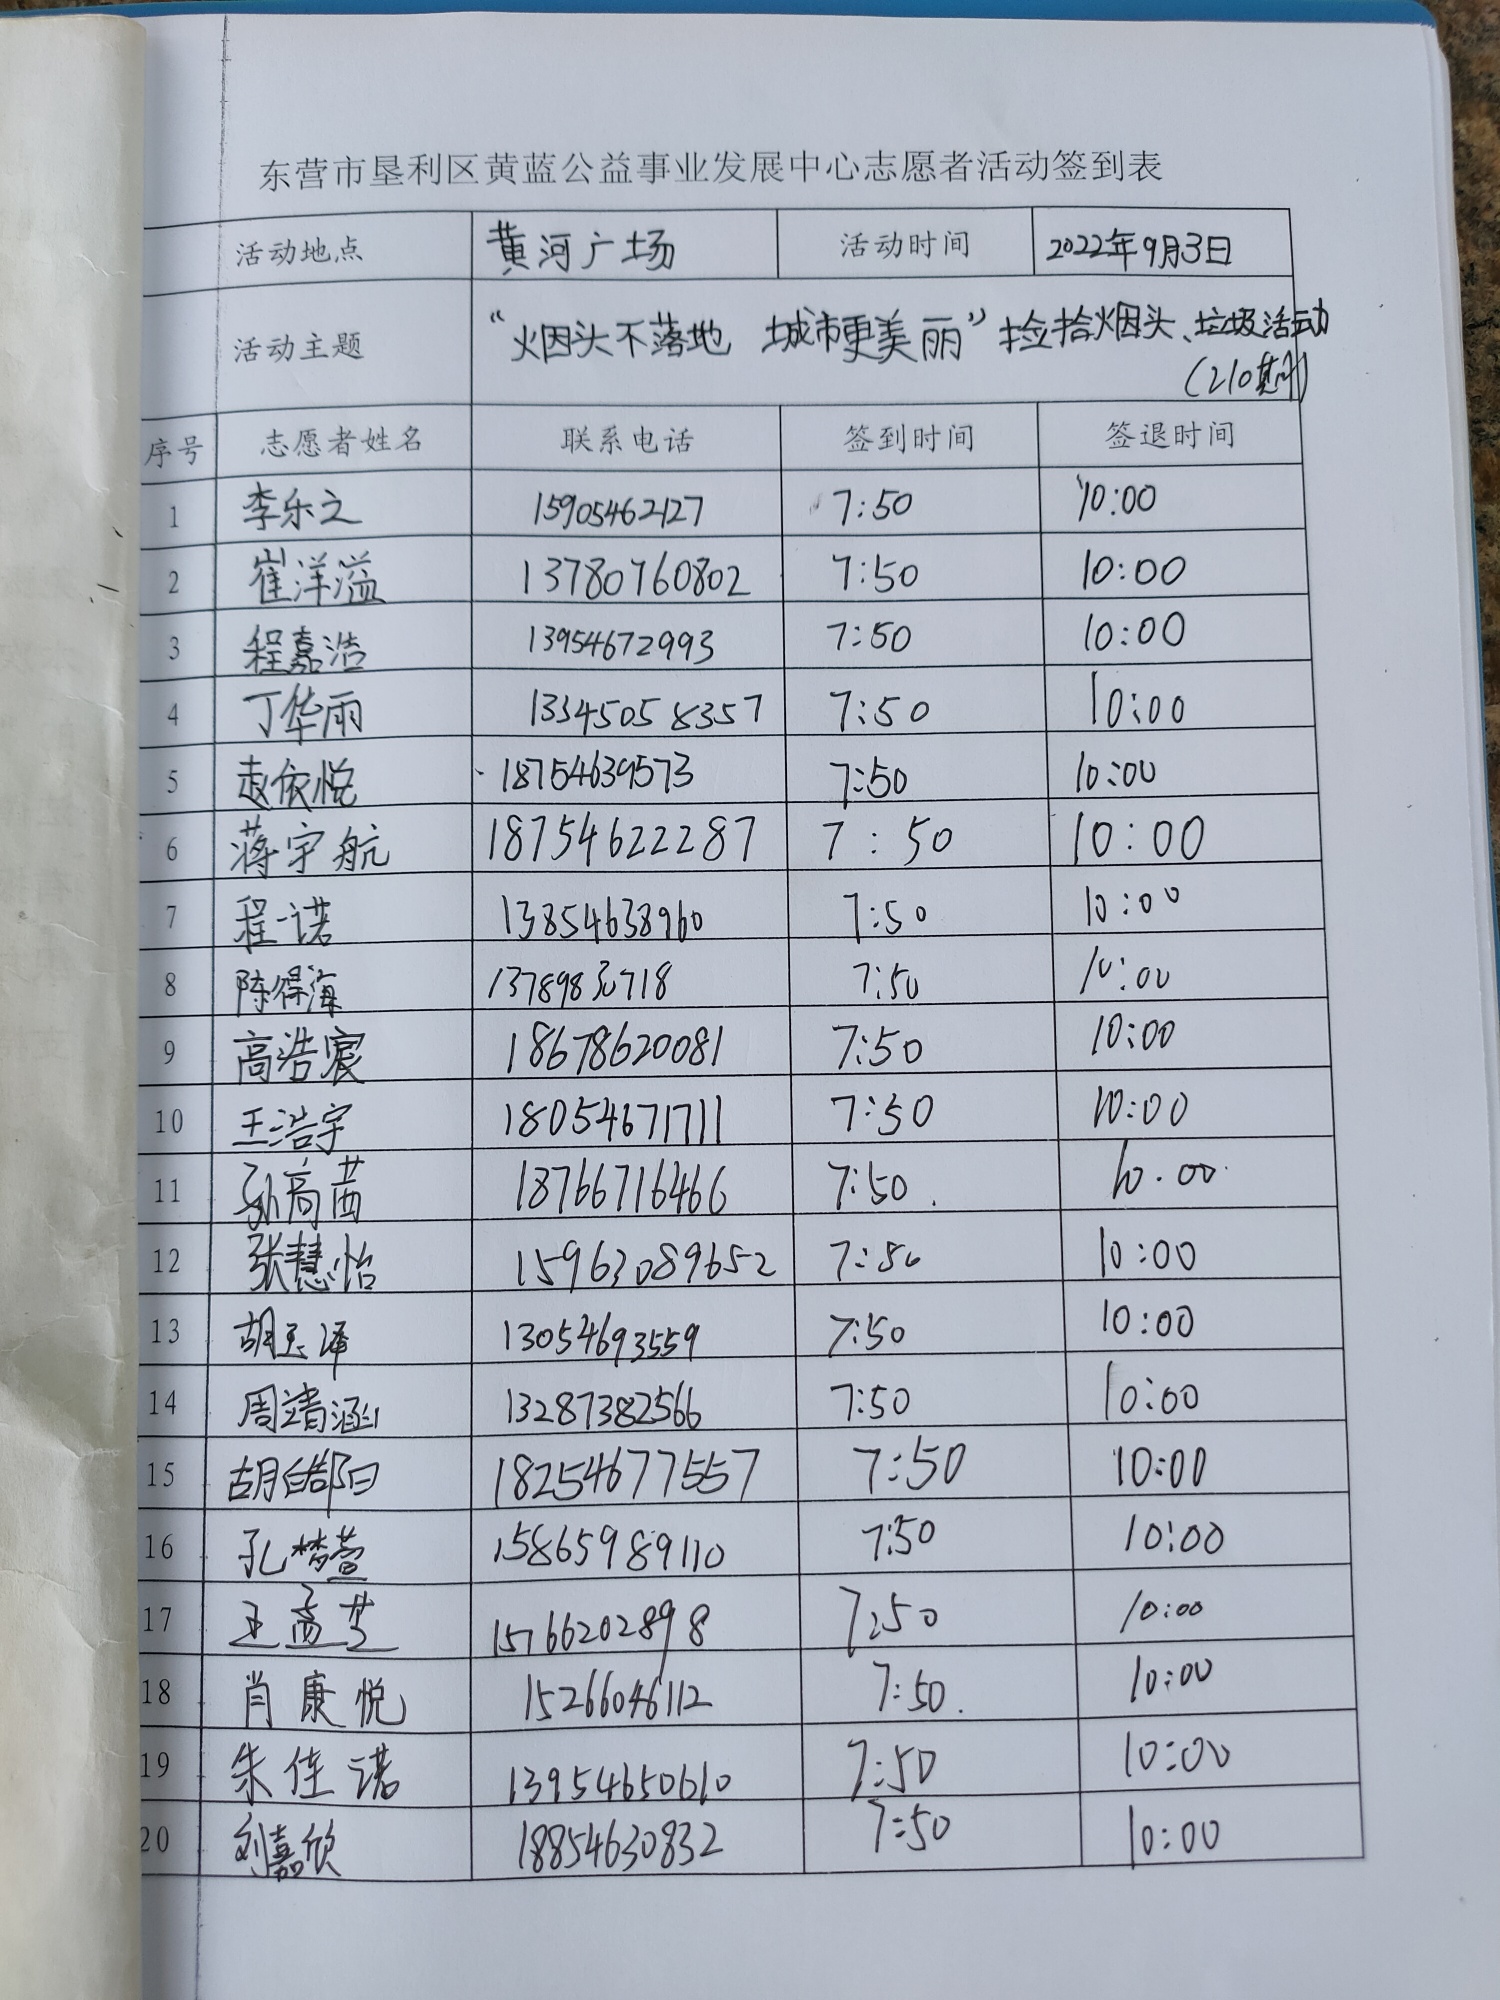 东营市垦利区黄蓝公益事业发展中心志愿者活动签到表
活动地点 黄河广场 活动时间 2022年9月3日
活动主题 “烟头不落地 城市更美丽”捡拾烟头、垃圾活动
(210期)
序号 志愿者姓名 联系电话 签到时间 签退时间
1 李乐之 15905462127 7:50 10:00
2 崔洋溢 13780760802 7:50 10:00
3 程嘉浩 13954672993 7:50 10:00
4 丁华丽 13345058357 7:50 10:00
5 赵依悦 18754639573 7:50 10:00
6 蒋宇航 18754622287 7:50 10:00
7 程一诺 13854638960 7:50 10:00
8 陈得海 13789830718 7:50 10:00
9 高浩宸 18678620081 7:50 10:00
10 王浩宇 18054671711 7:50 10:00
11 孙高茜 18766716466 7:50. 10.00
12 张慧怡 15963089652 7:50 10:00
13 胡玉泽 13054693559 7:50 10:00
14 周靖涵 13287382566 7:50 10:00
15 18254677557 7:50 10:00
16 孔梦萱 15865989110 7:50 10:00
17 15766202898 7:50 10:00
18 肖康悦 15266046112 7:50. 10:00
19 朱佳诺 13954650610 7:50 10:00
20 刘嘉欣 18854630832 7:50 10:00